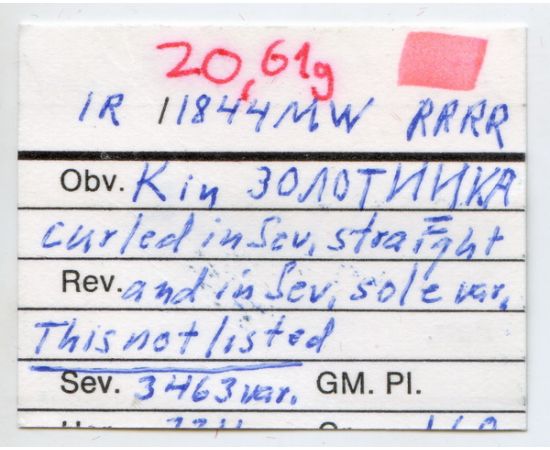 20,61g
1R 11844MW RRRR
Obv. K in ЗОЛОТНИКА
curled in Sev, straight
Rev. and in Sev, sole var,
This not listed
Sev. 3463 var. GM. Pl.